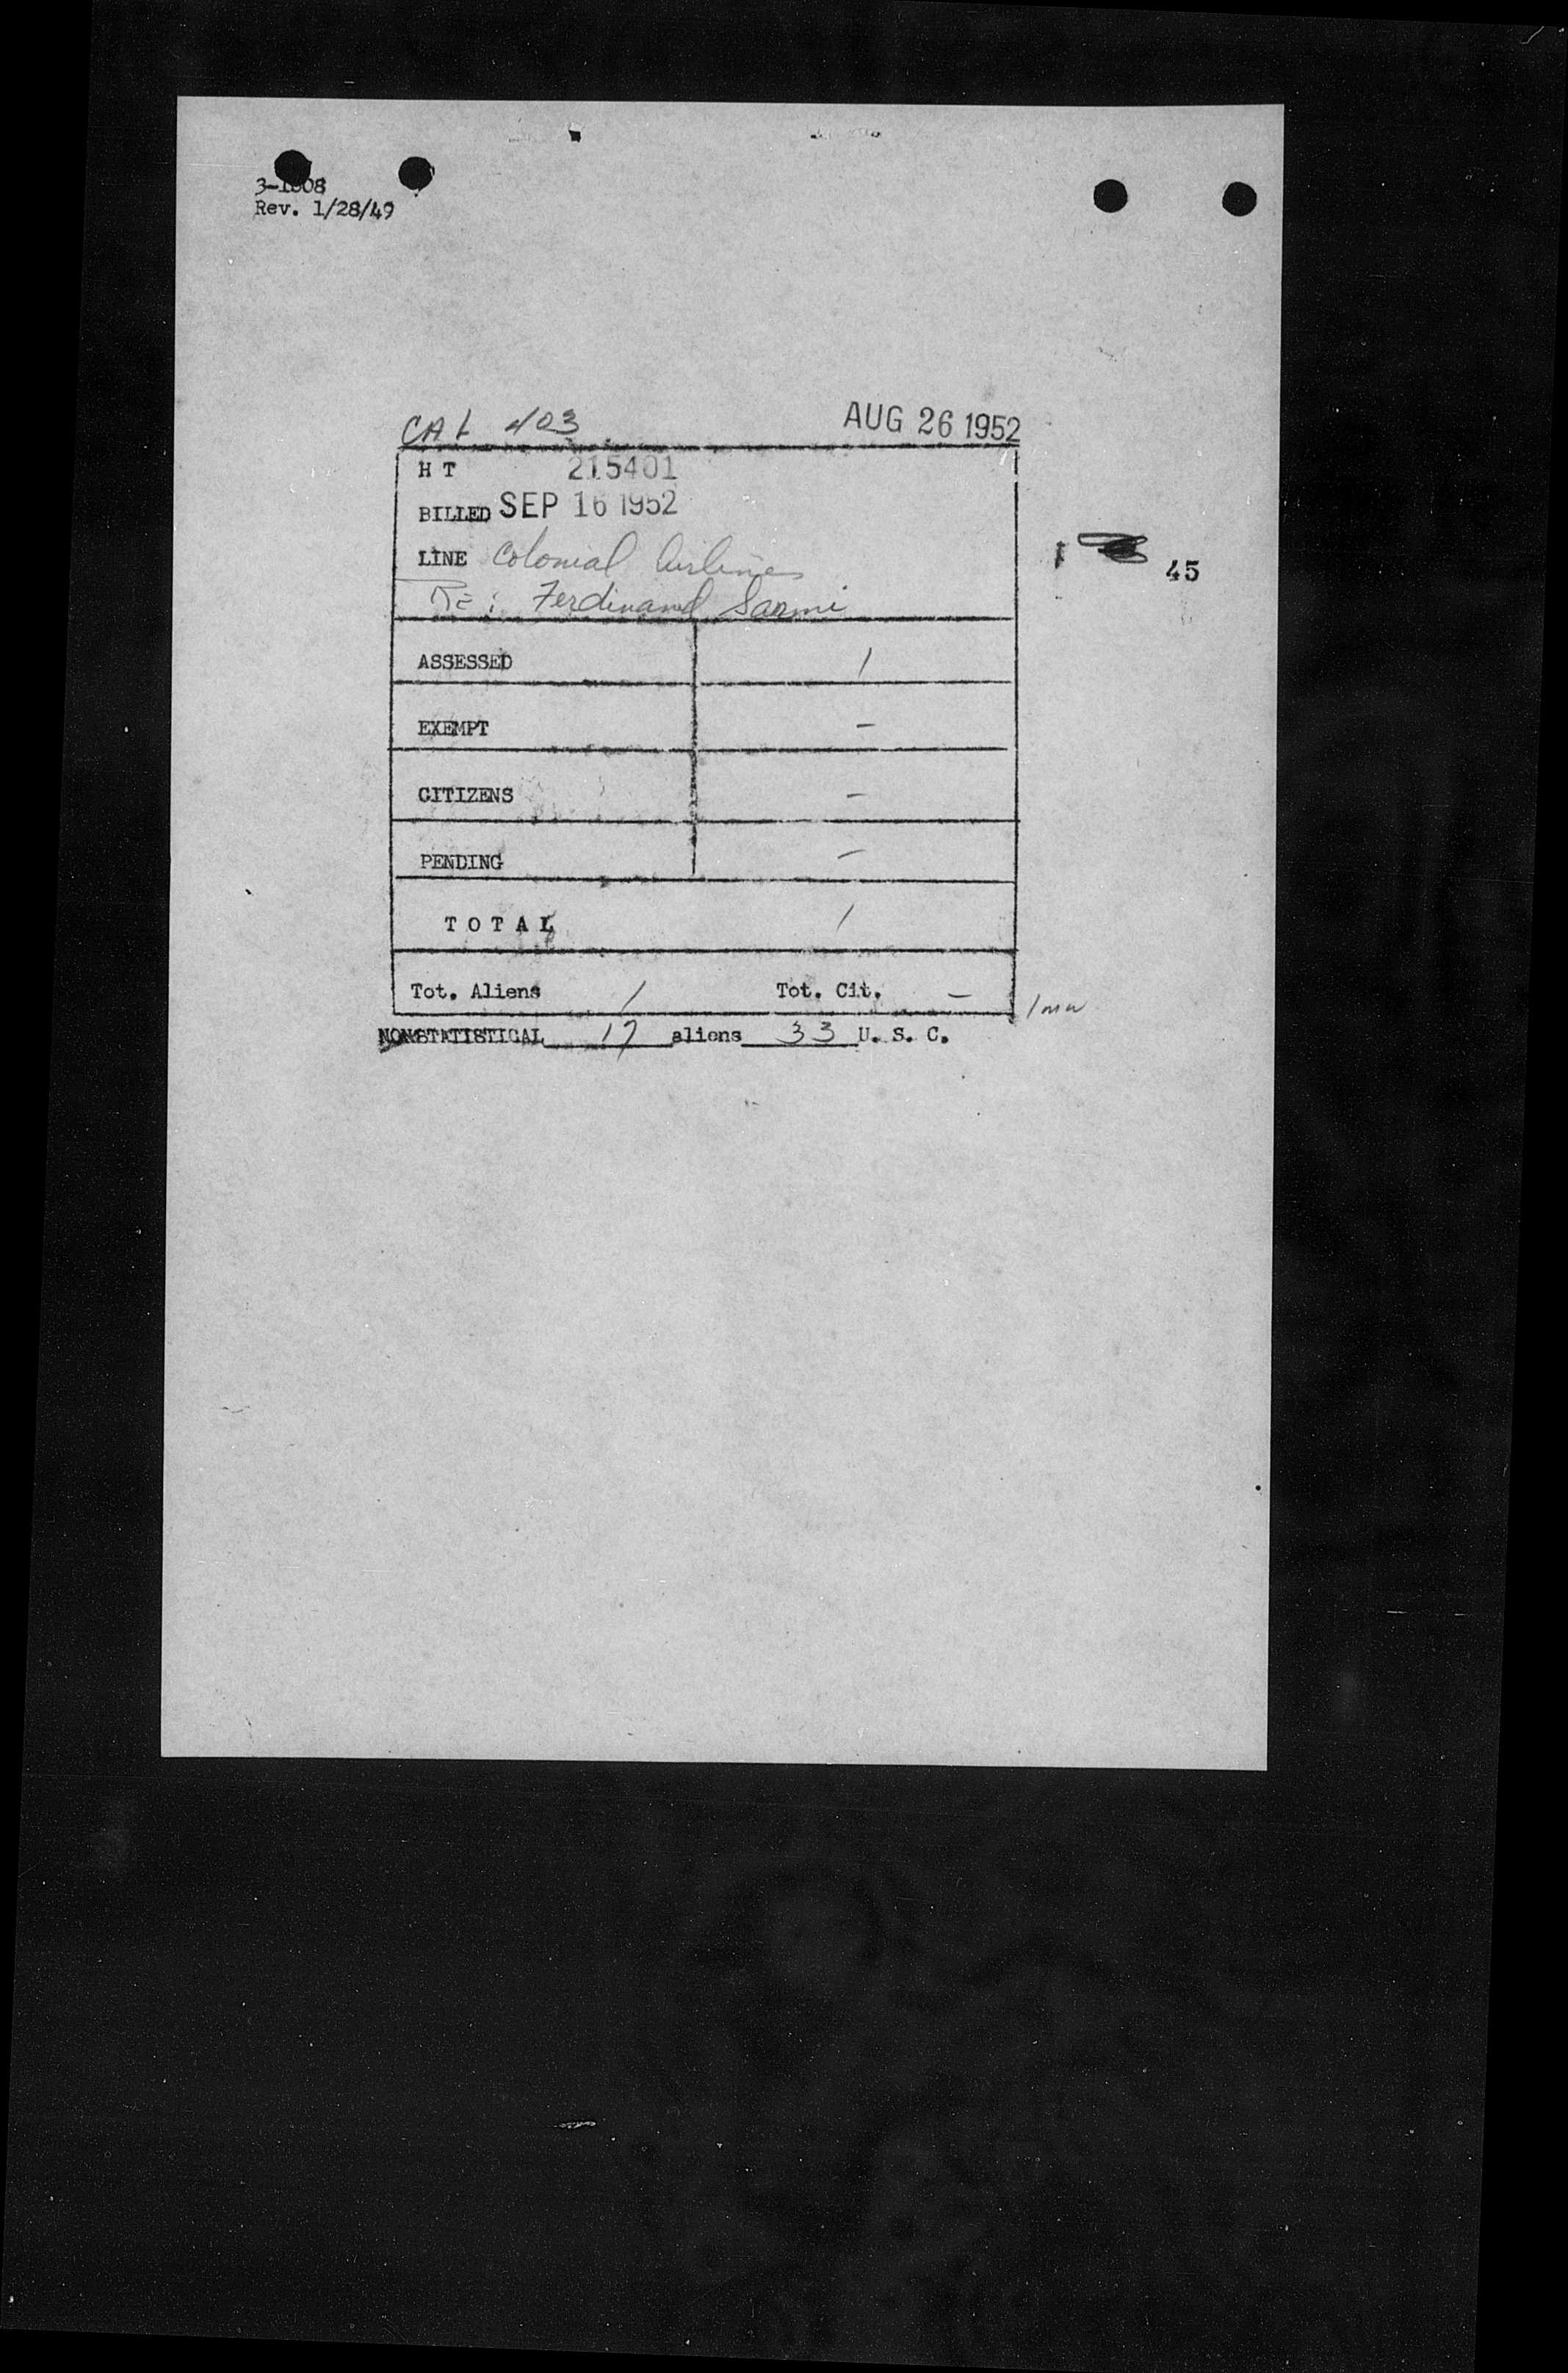 3-1008
Rev. 1/28/49
CAL 403 AUG 26 1952
H T 215401
BILLED SEP 16 1952
LINE Colonial Airlines
45
Re: Ferdinand Sarmi
ASSESSED 1
EXEMPT -
CITIZENS -
PENDING -
TOTAL 1
Tot. Aliens 1 Tot. Cit. -
NONSTATISTICAL 17 aliens 33 U. S. C.